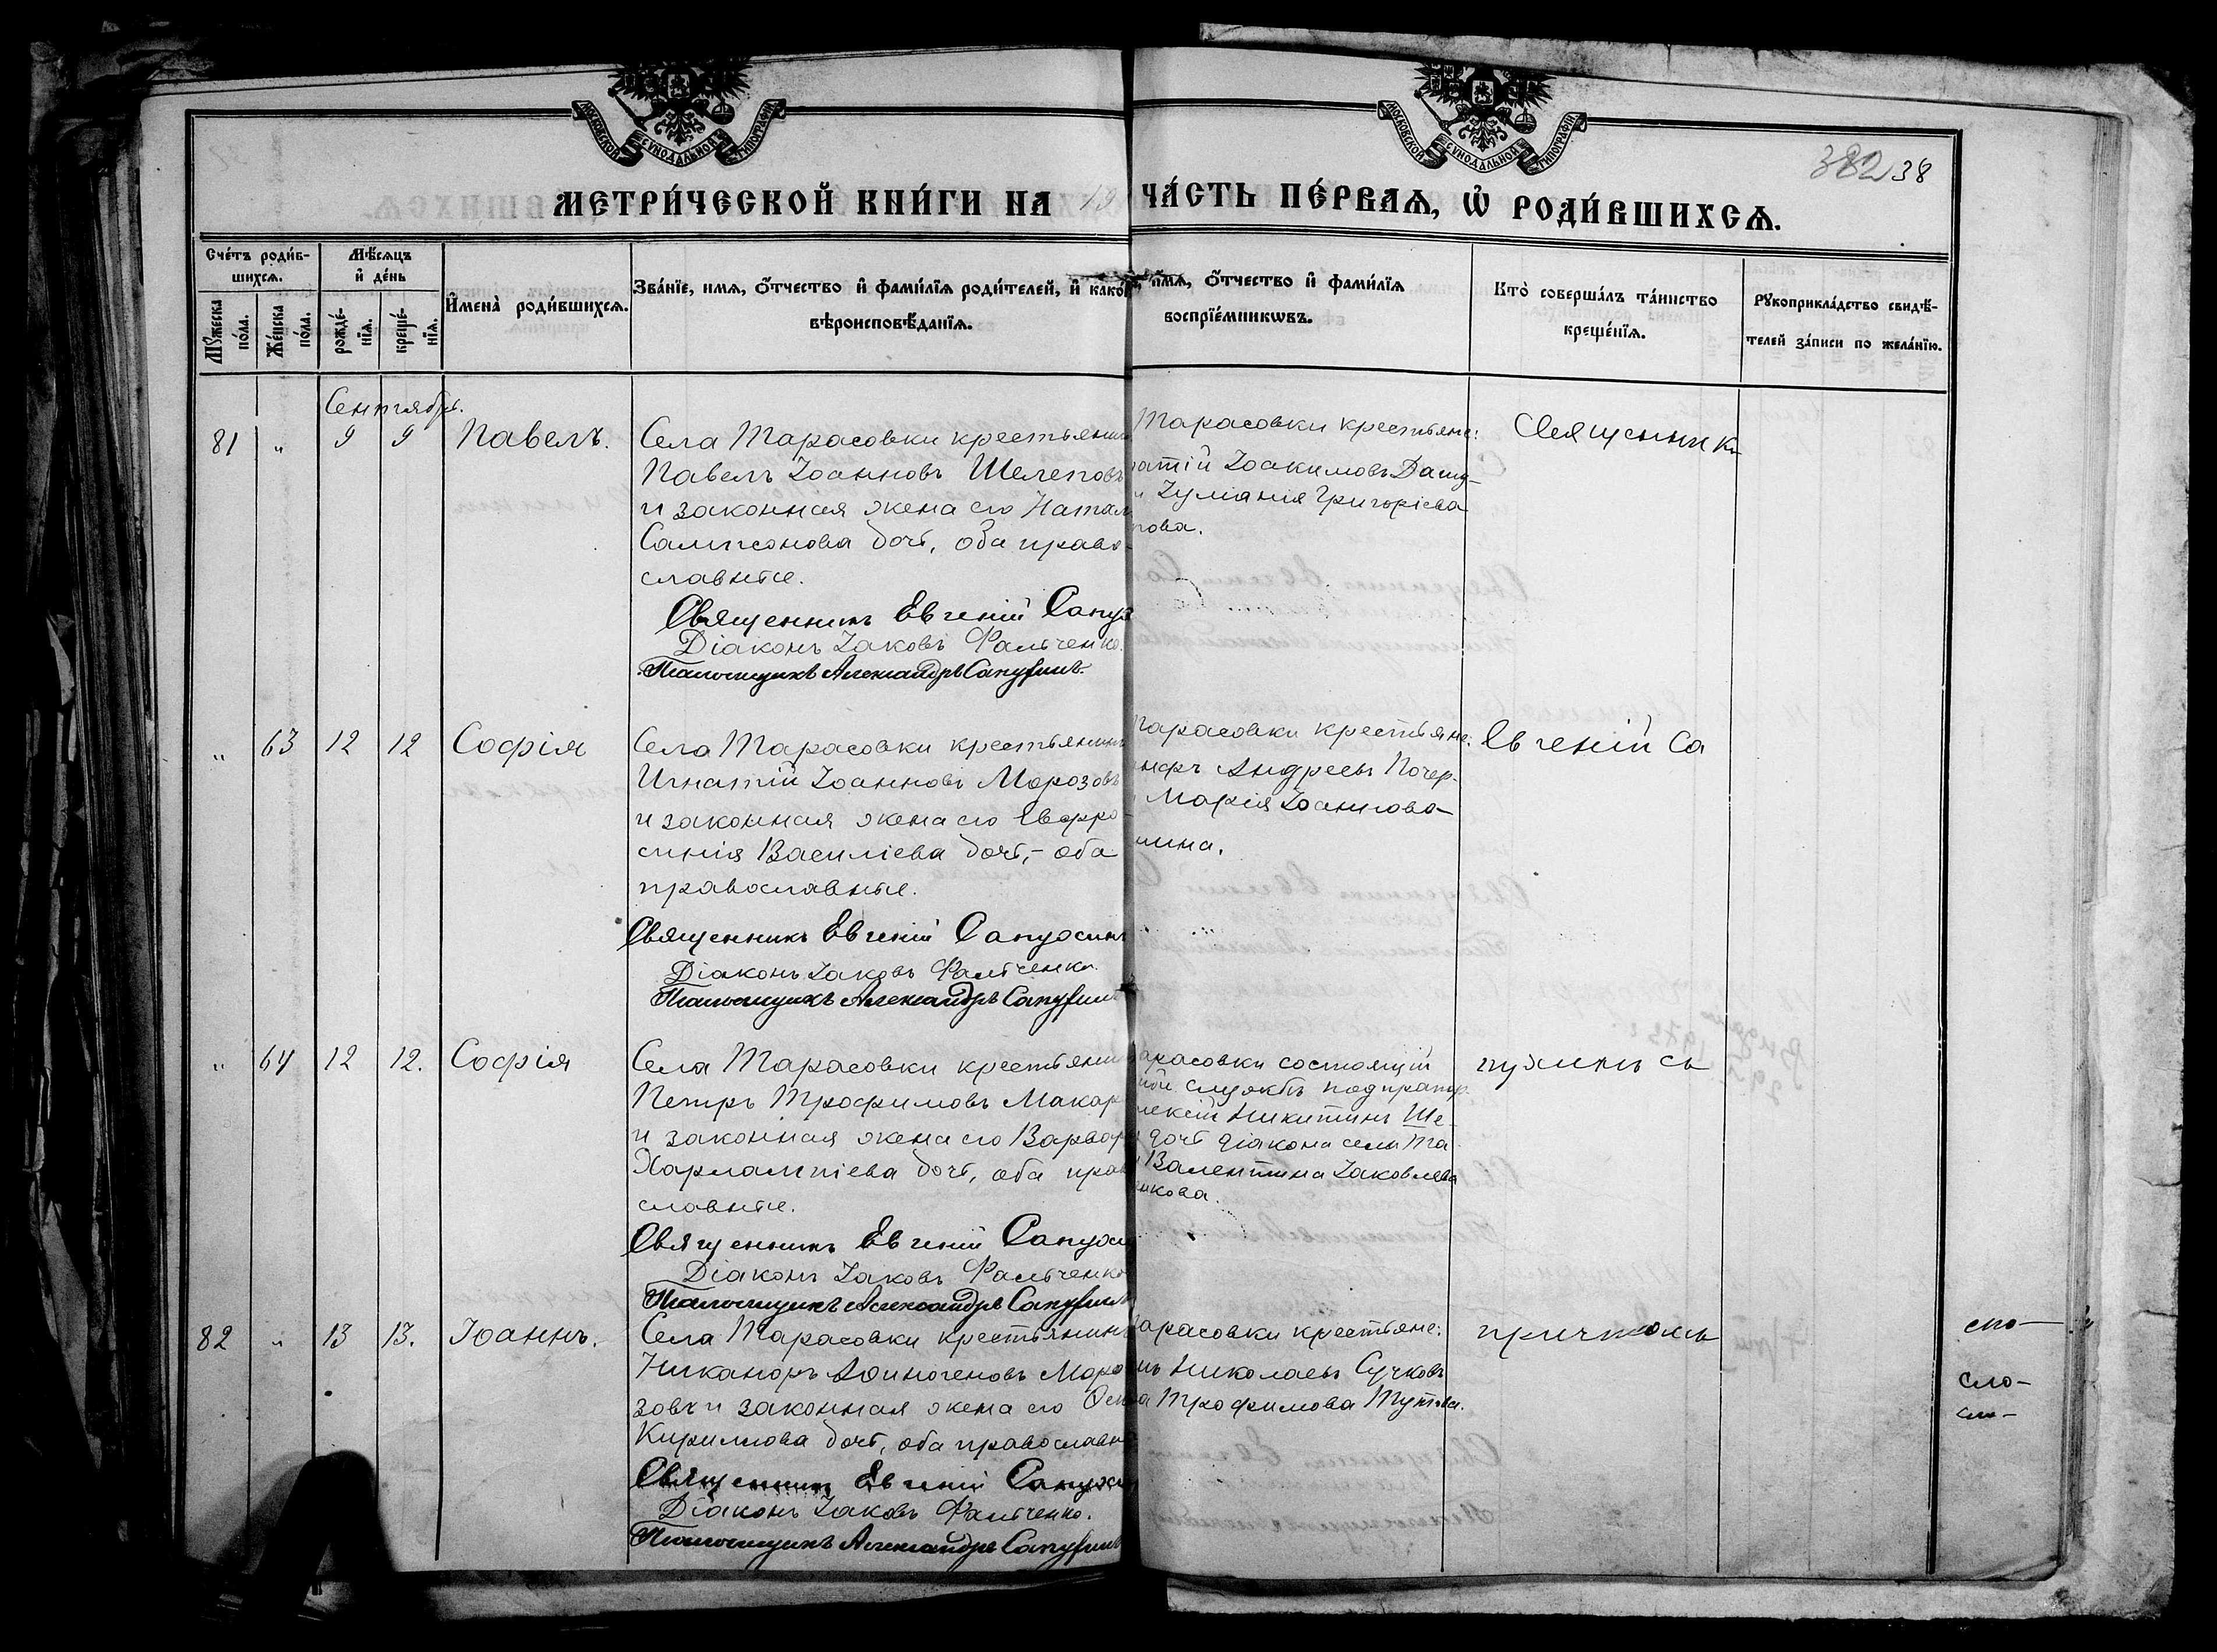 МОСКОВСКОЙ СѴНОДАЛЬНОЙ ТИПОГРАФІИ
МОСКОВСКОЙ СѴНОДАЛЬНОЙ ТИПОГРАФІИ
38
МЕТРИ́ЧЕСКОЙ КНИ́ГИ НА 19 ЧА́СТЬ ПЕ́РВАѦ, Ѡ҆ РОДИ́ВШИХСѦ.
Сче́тъ роди́в-
шихсѧ.
Мѣ́сѧцъ
и҆ де́нь
Мꙋ́жеска
по́ла.
Же́нска
по́ла.
рожде́-
нїѧ.
креще́-
нїѧ.
И҆мена̀ роди́вшихсѧ.
Зва́нїе, имѧ, ѻ҆́тчество и҆ фами́лїѧ роди́телей, и҆ како́й
вѣроисповѣ́данїѧ.
и҆́мѧ, ѻ҆́тчество и҆ фами́лїѧ
воспрїе́мникѡвъ.
Кто̀ соверша́лъ та́инство
креще́нїѧ.
Рꙋкоприкла́дство свидѣ́-
телей за́писи по жела́нїю.
Сентябрь.
81 " 9 9 Павелъ.
Села Тарасовки крестьянинъ
Павелъ Іоанновъ Шелеповъ
и законная жена его Натал
Сампсонова дочь, оба право-
славные.
Священникъ Евгеній Сапу
Діаконъ Іаковъ Фальченко.
Псаломщикъ Александръ Сапухинъ.
Тарасовки крестьяне:
атій Іоакимовъ Дашу-
и Іуліанія Григоріева
пова.
Священник
" 63 12 12 Софія
Села Тарасовки крестьянинъ
Игнатій Іоанновъ Морозовъ
и законная жена его Евфро-
синія Василіева дочь,- оба
православные.
Священникъ Евгеній Сапухинъ
Діаконъ Іаковъ Фальченко.
Псаломщикъ Александръ Сапухин
Тарасовки крестьяне:
Андреевъ Почер-
Марія Іоаннова
шина.
Евгеній Са
" 64 12 12. Софія
Села Тарасовки крестьянин
Петръ Трофимовъ Макар
и законная жена его Варвар
Харлампіева дочь, оба прав
славные.
Священникъ Евгеній Сапухи
Діаконъ Іаковъ Фальченко
Псаломщикъ Александръ Сапухин
арасовки состоящій
ной службѣ подпрапор
лексій Никитинъ Ше-
дочь діакона села Та
Валентина Іаковлева
енкова.
пухинъ съ
82 " 13 13. Іоаннъ.
Села Тарасовки крестьянинъ
Никаноръ Аѳиногеновъ Моро
зовъ и законная жена его
Кириллова дочь, оба православн
Священникъ Евгеній Сапухи
Діаконъ Іаковъ Фальченко.
Псаломщикъ Александръ Сапухин
арасовки крестьяне:
Николаевъ Сучковъ
Трофимова
причтомъ